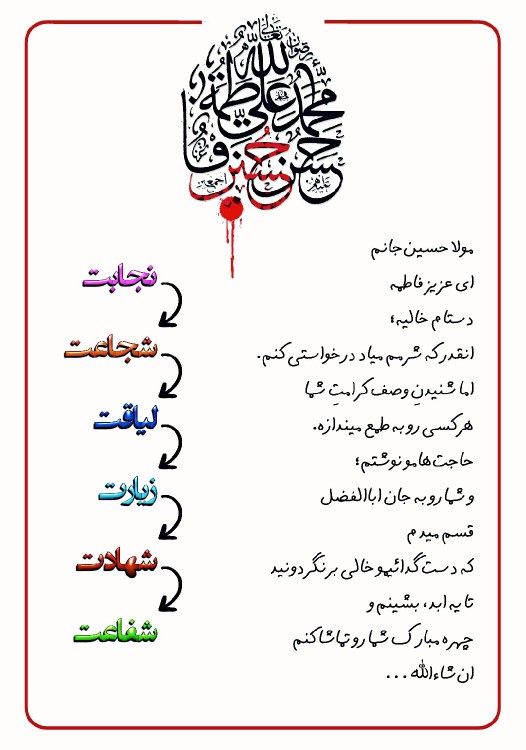 رضوان الله تعالی
محمد علی فاطمه
حسن حسین
علیهم اجمعین
مولا حسین جانم
ای عزیز فاطمه
دستام خالیه؛
انقدر که شرمم میاد درخواستی کنم.
اما شنیدنِ وصف کرامتِ شما
هرکسی رو به طمع میندازه.
حاجت هامو نوشتم؛
و شما رو به جان اباالفضل
قسم میدم
که دست گدائیمو خالی برنگردونید
تا یه ابد، بشینم و
چهره مبارک شما رو تماشا کنم
ان شاءالله ...
نجابت
شجاعت
لیاقت
زیارت
شهادت
شفاعت